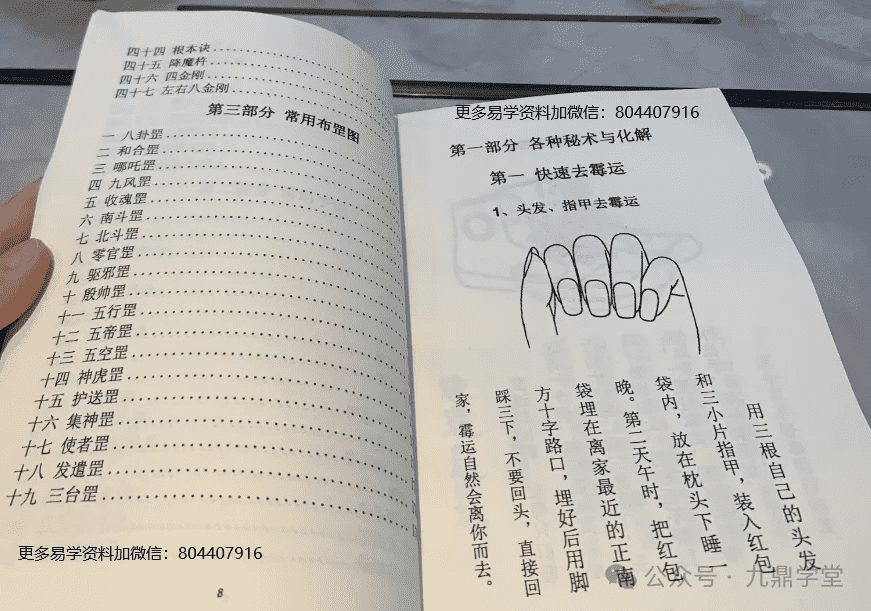 四十四 根本诀
四十五 降魔杵
四十六 四金刚
四十七 左右八金刚
第三部分 常用布罡图
一 八卦罡
二 和合罡
三 哪吒罡
四 九凤罡
五 收魂罡
六 南斗罡
七 北斗罡
八 零官罡
九 驱邪罡
十 殷帅罡
十一 五行罡
十二 五帝罡
十三 五空罡
十四 神虎罡
十五 护送罡
十六 集神罡
十七 使者罡
十八 发遣罡
十九 三台罡
更多易学资料加微信：804407916
8
更多易学资料加微信：804407916
第一部分 各种秘术与化解
第一 快速去霉运
1、头发、指甲去霉运
用三根自己的头发
和三小片指甲，装入红包
袋内，放在枕头下睡一
晚。第二天午时，把红包
袋埋在离家最近的正南
方十字路口，埋好后用脚
踩三下，不要回头，直接回
家，霉运自然会离你而去。
公众号·九鼎学堂